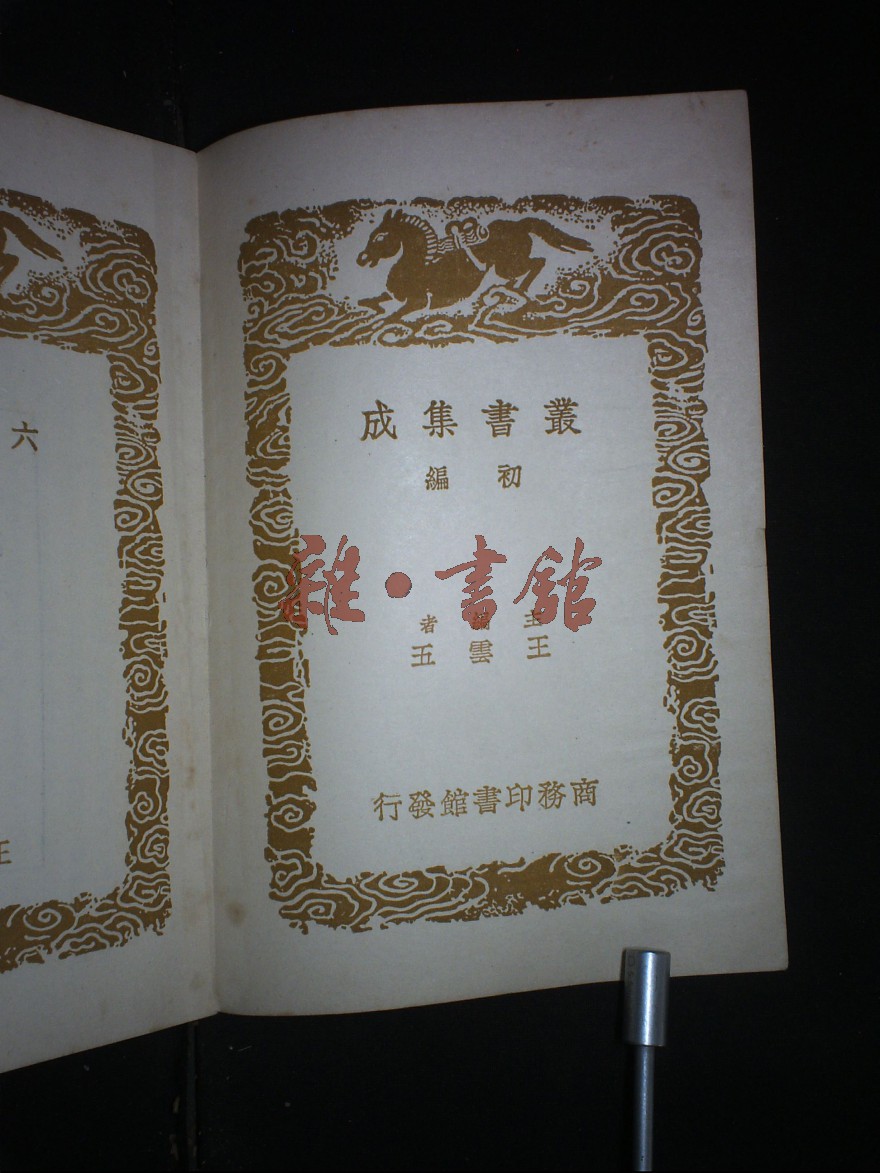 叢書集成
初編
雜·書館
主編者
王雲五
商務印書館發行
六
王